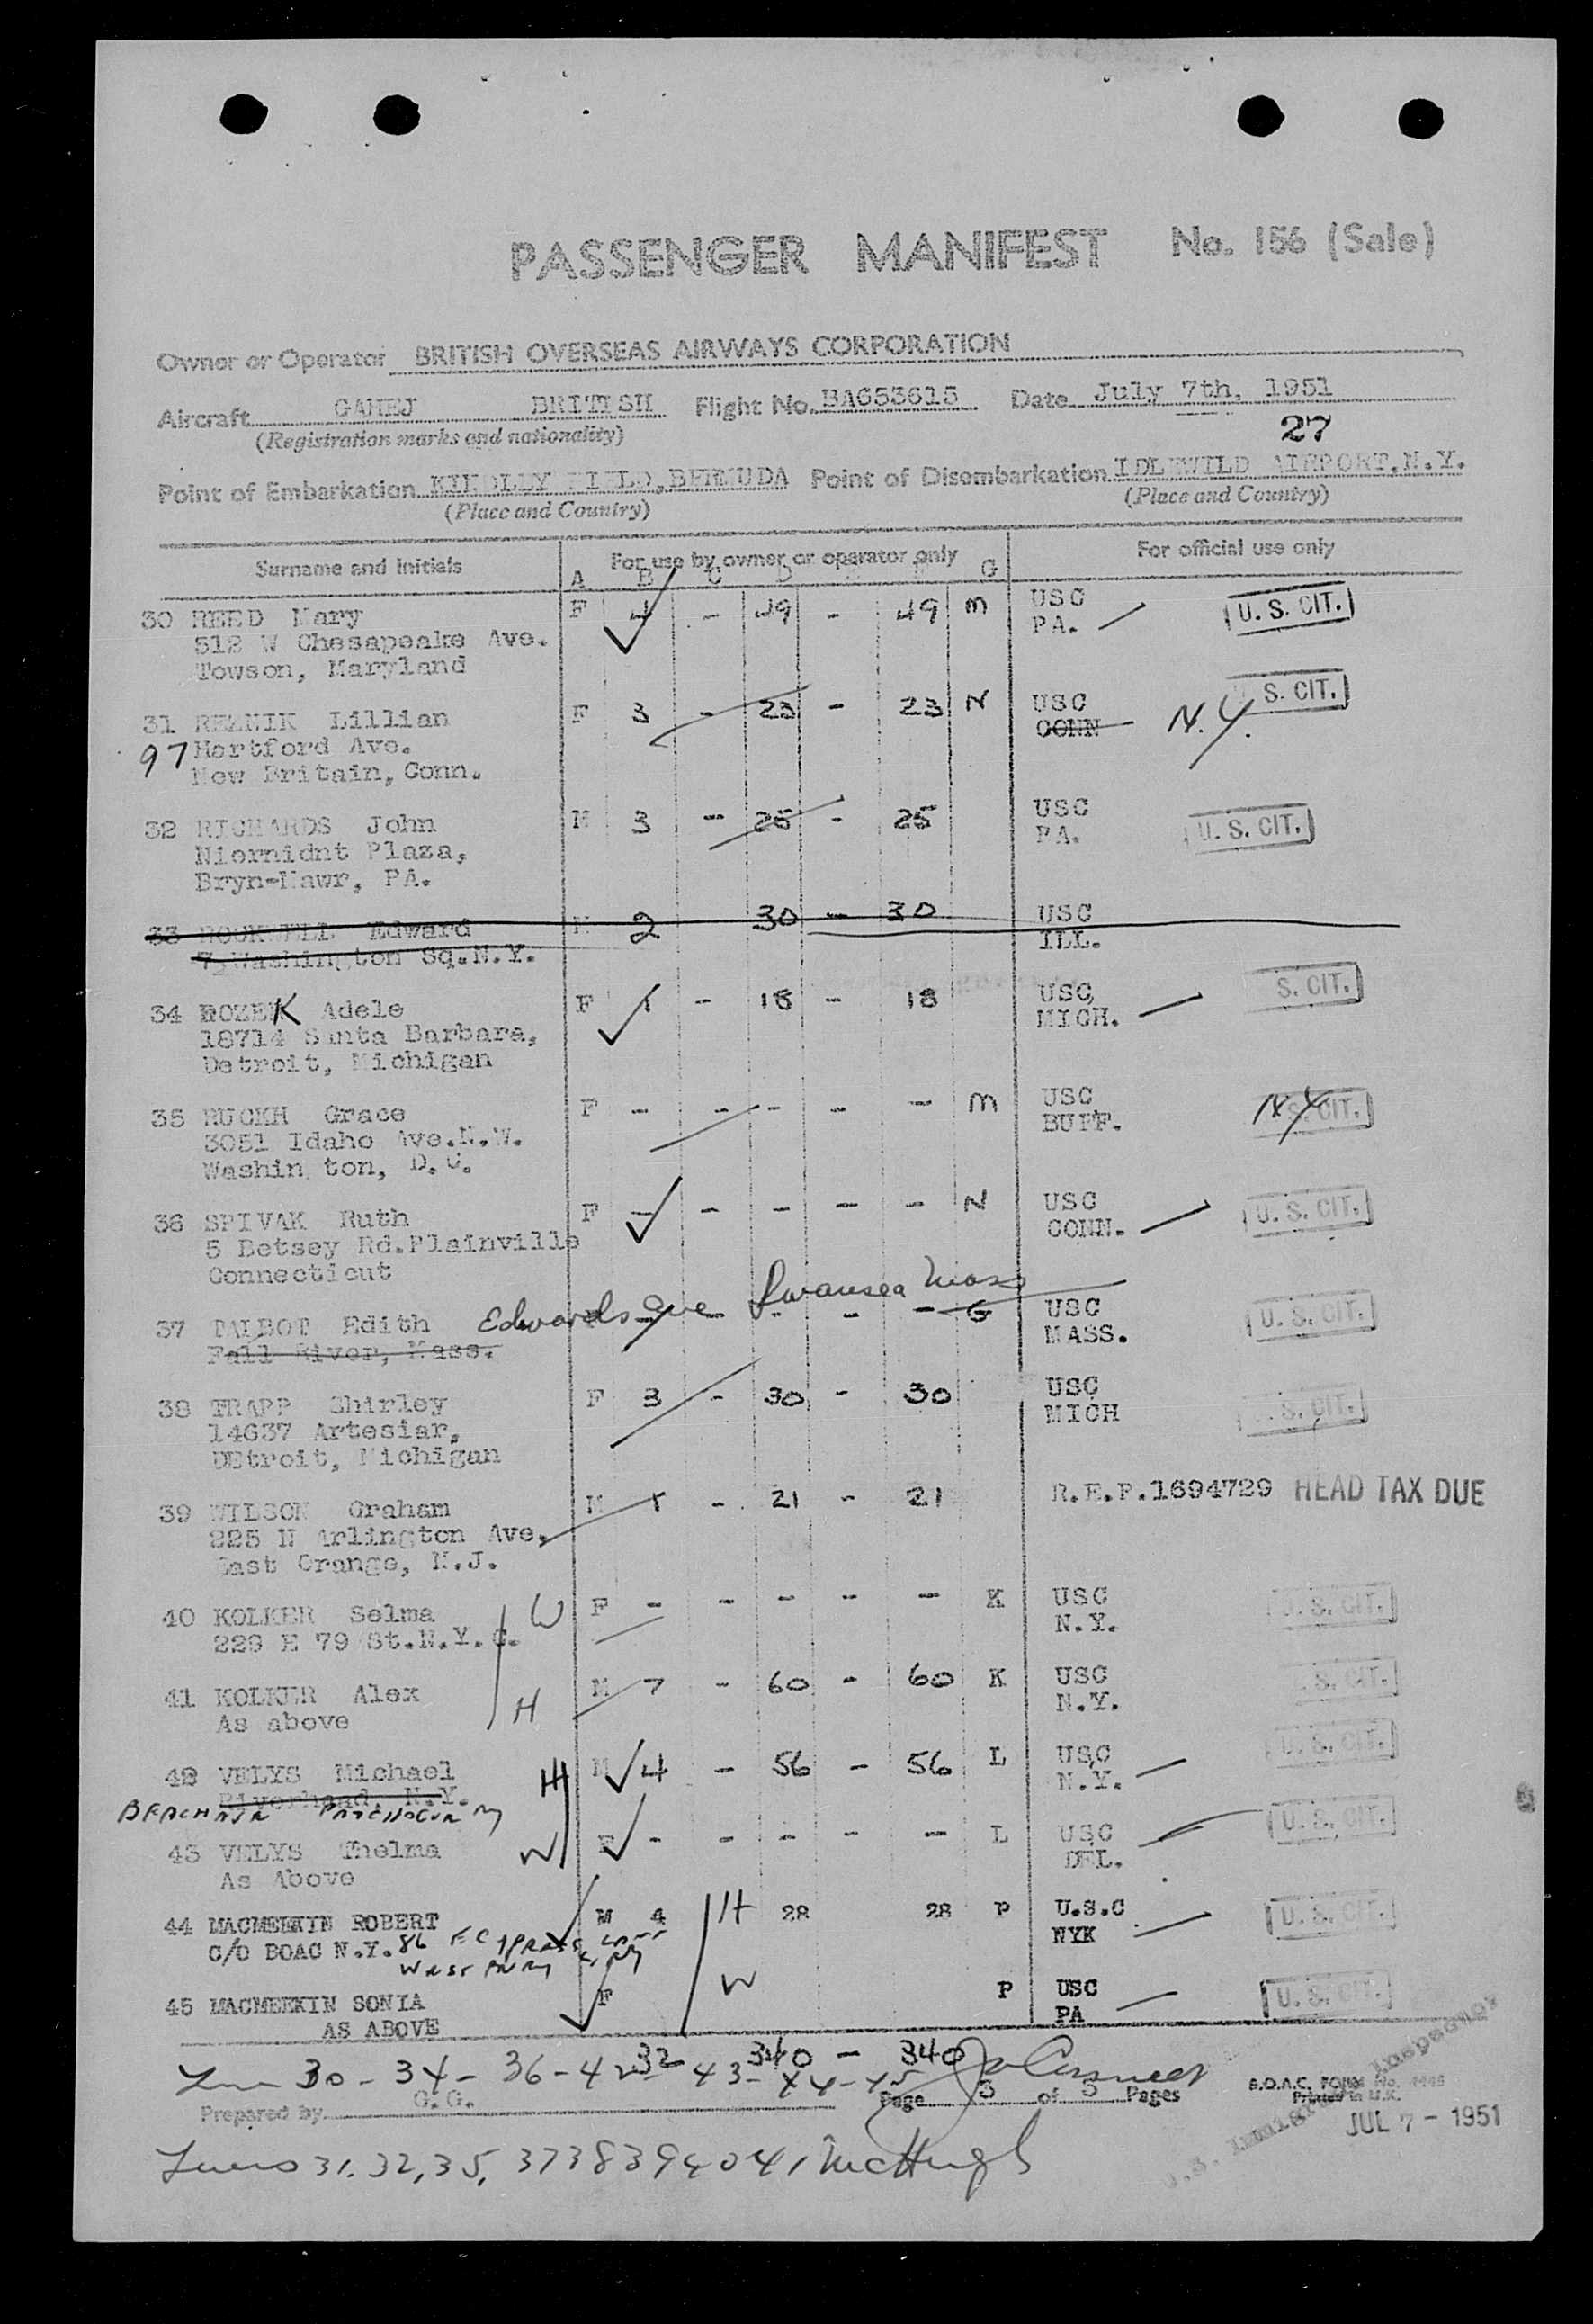 PASSENGER MANIFEST No. 156 (Sale)
Owner or Operator BRITISH OVERSEAS AIRWAYS CORPORATION
Aircraft GAHEJ BRITISH Flight No. BA653615 Date July 7th, 1951
(Registration marks and nationality)
27
Point of Embarkation KINDLLY FIELD, BERMUDA Point of Disembarkation IDLEWILD AIRPORT, N.Y.
(Place and Country) (Place and Country)
Surname and initials For use by owner or operator only For official use only
A B C D E F G
30 REED Mary F 4 - 49 - 49 M USC U. S. CIT.
512 W Chesapeake Ave. PA.
Towson, Maryland
31 REZNIK Lillian F 3 - 23 - 23 N USC S. CIT.
97 Hartford Ave. CONN N.Y.
New Britain, Conn.
32 RICHARDS John M 3 - 25 - 25 USC U. S. CIT.
Niernidnt Plaza, PA.
Bryn-Mawr, PA.
33 ROCKWELL Edward M 2 30 - 30 USC
7, Washington Sq. N.Y. ILL.
34 ROZEK Adele F 1 - 18 - 18 USC S. CIT.
18714 Santa Barbara, MICH.
Detroit, Michigan
35 RUCKH Grace F - - - - - M USC N.Y. S. CIT.
3051 Idaho Ave. N.W. BUFF.
Washin ton, D.C.
36 SPIVAK Ruth F - - - - - N USC U. S. CIT.
5 Betsey Rd. Plainville CONN.
Connecticut
Edwards Ave Swansea Mass
37 TALBOT Edith - - - - - G USC U. S. CIT.
Fall River, Mass. MASS.
38 TRAPP Shirley F 3 - 30 - 30 USC S. CIT.
14637 Artesiar, MICH
DEtroit, Michigan
39 WILSON Graham M 1 - 21 - 21 R.E.P.1694729 HEAD TAX DUE
225 N Arlington Ave.
East Orange, N.J.
40 KOLKER Selma W F - - - - - K USC U. S. CIT.
229 E 79 St. N.Y.C. N.Y.
41 KOLKER Alex H M 7 - 60 - 60 K USC S. CIT.
As above N.Y.
42 VELYS Michael H M 4 - 56 - 56 L USC U. S. CIT.
Riverhead, N.Y. N.Y.
BEACH AVE PATCHOGUE NY
43 VELYS Thelma W F - - - - - L USC U. S. CIT.
As Above DEL.
44 MACMEEKIN ROBERT M 4 H 28 28 P U.S.C U. S. CIT.
C/O BOAC N.Y. 86 E CYPRESS LANE NYK
WESTBURY NY
45 MACMEEKIN SONIA F W P USC U. S. CIT.
AS ABOVE PA
32 340 - 340
Line 30 - 34 - 36 - 42 - 43 - 44 - 45
Prepared by G.G. Page 3 of 3 Pages
B.O.A.C. FORM No.
Printed in U.K.
U.S. Immigrant Inspector
JUL 7 - 1951
Lines 31, 32, 35, 37 38 39 40 41 McHugh